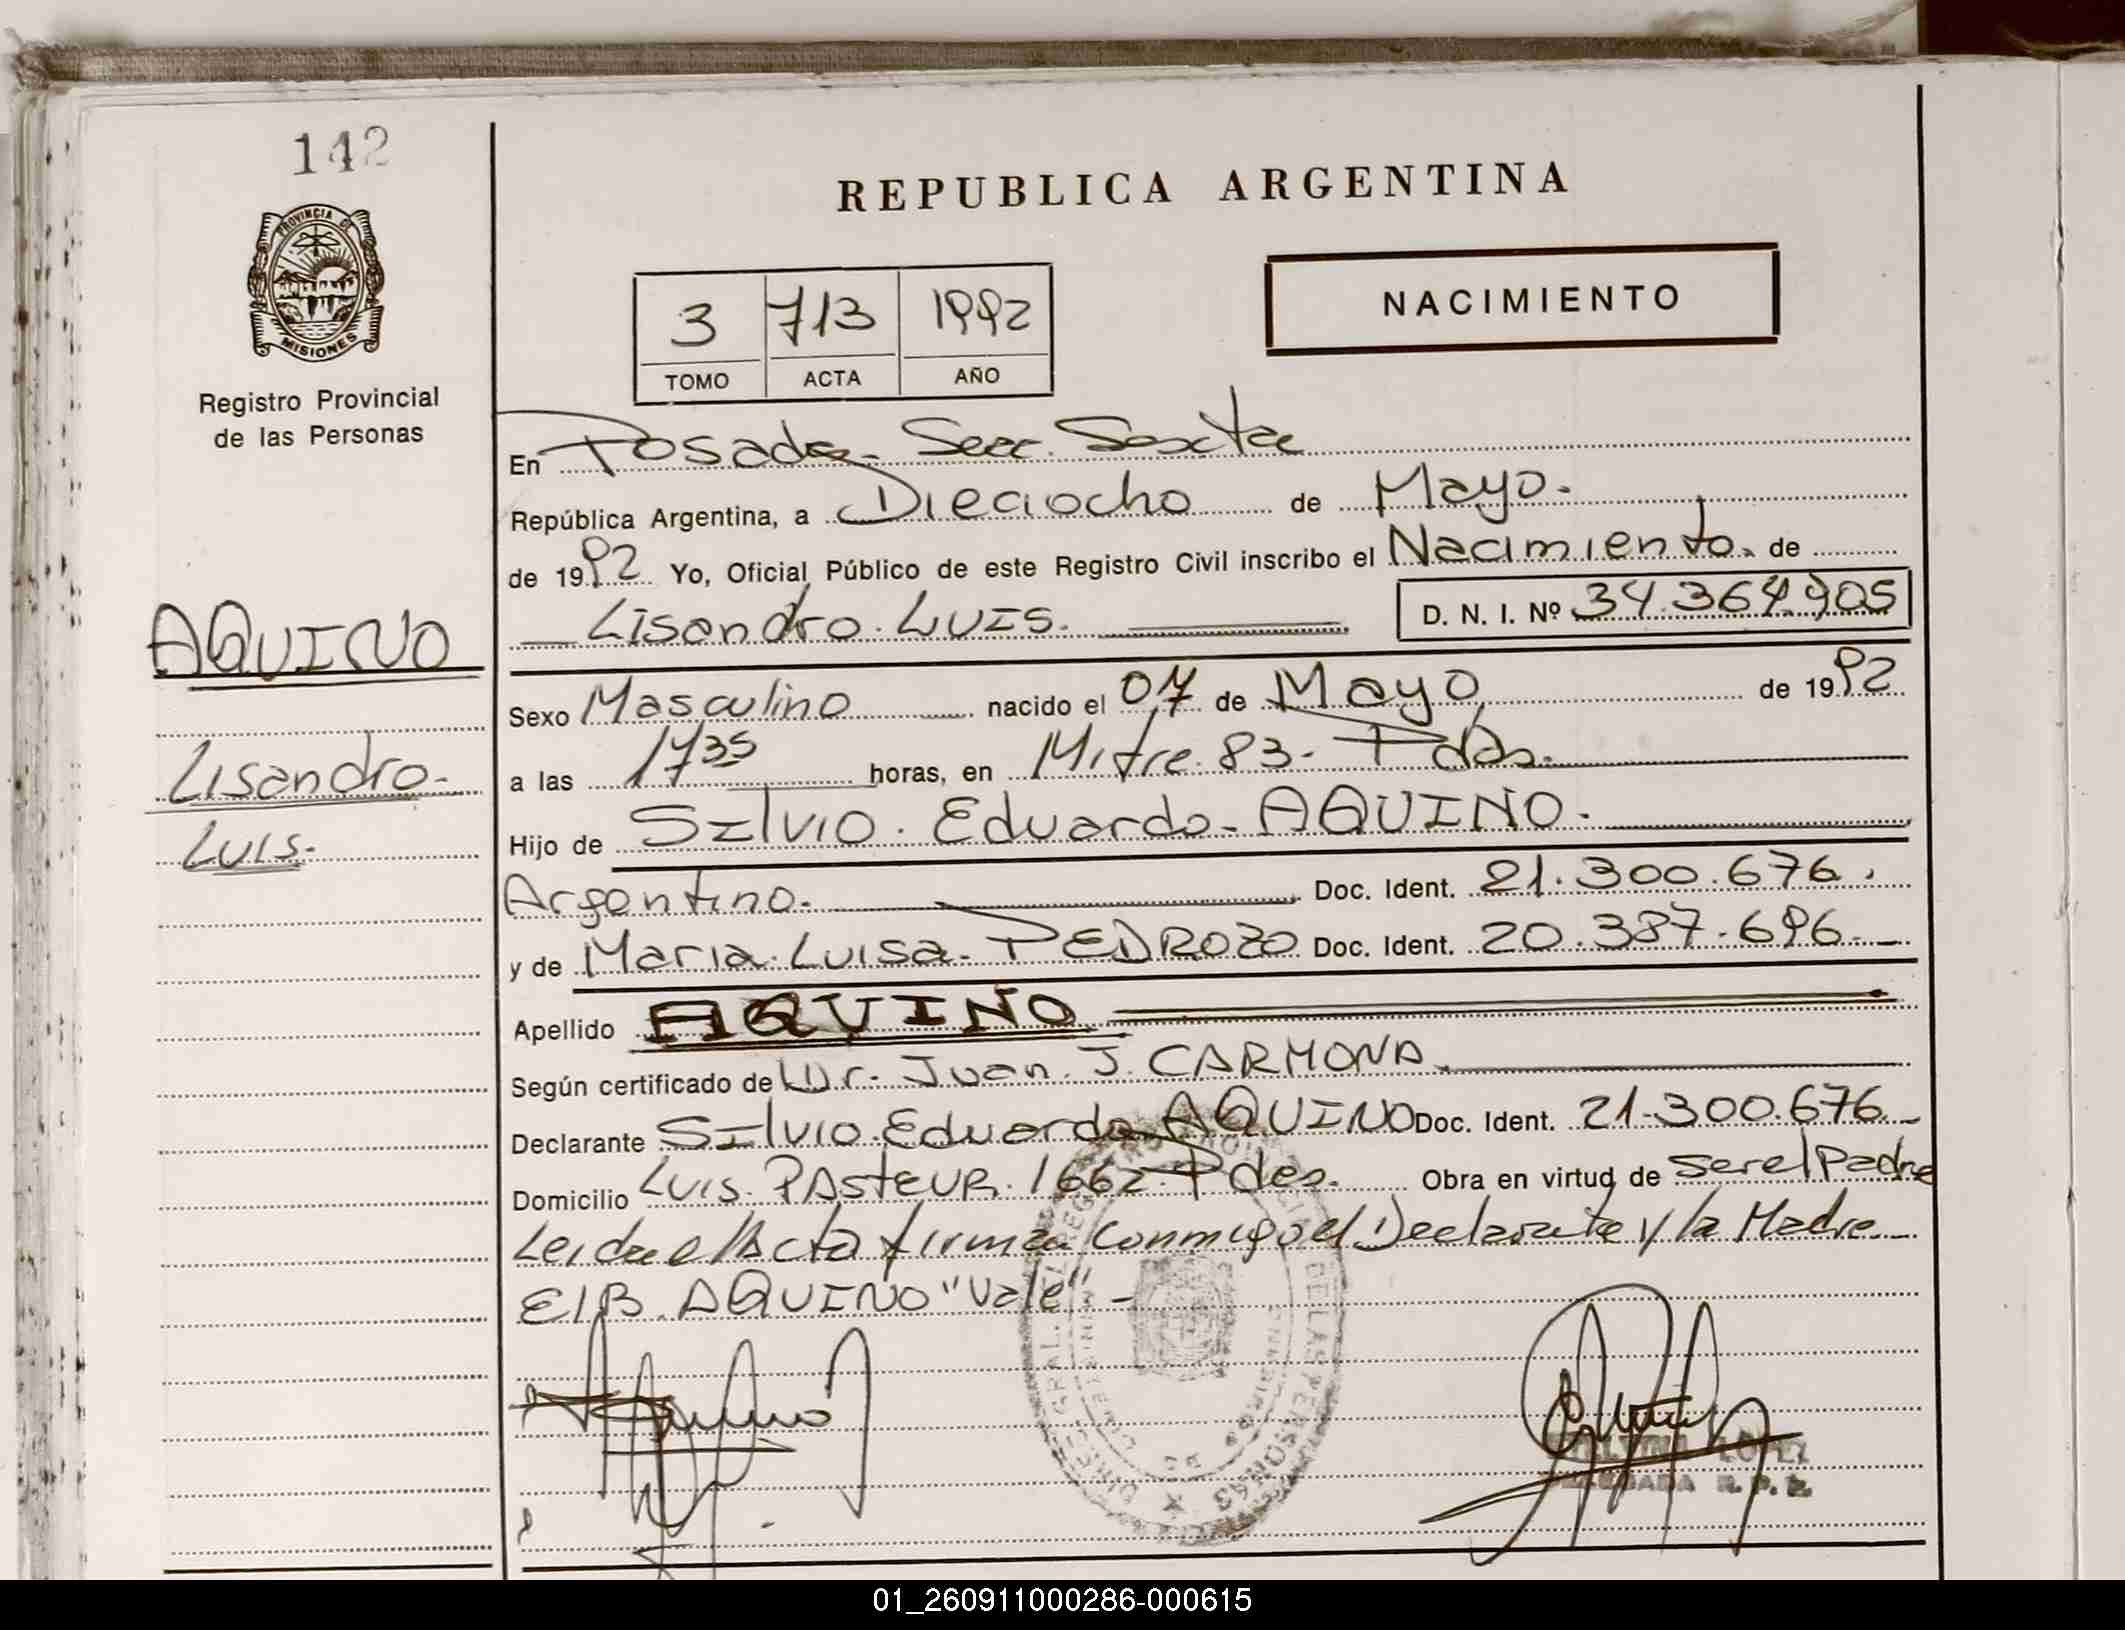 142
PROVINCIA DE
MISIONES
Registro Provincial
de las Personas
AQUINO
Lisandro.
Luis.
REPUBLICA ARGENTINA
3 713 1992
TOMO ACTA AÑO
NACIMIENTO
En Posadas Secc. Sexta
República Argentina, a Dieciocho de Mayo.
de 1992 Yo, Oficial Público de este Registro Civil inscribo el Nacimiento. de
Lisandro. LUIS.
D. N. I. Nº 34.364.905
Sexo Masculino nacido el 07 de Mayo de 1992
a las 1735 horas, en Mitre. 83- Pdas.
Hijo de SIlvio. Eduardo- AQUINO.
Argentino. Doc. Ident. 21.300.676.
y de Maria. Luisa- PEDROZO Doc. Ident. 20.387.696.-
Apellido AQUINO
Según certificado de Dr. Juan. J. CARMONA
Declarante SIlvio. Eduardo AQUINO Doc. Ident. 21.300.676.-
Domicilio Luis. PAsteur. 1662 Pdas. Obra en virtud de ser el Padre
Leida el Acta firman conmigo el Declarante y la Madre.
E/B. AQUINO "Vale" -
DE LAS PERSONAS
LOPEZ
R. P. P.
01_260911000286-000615